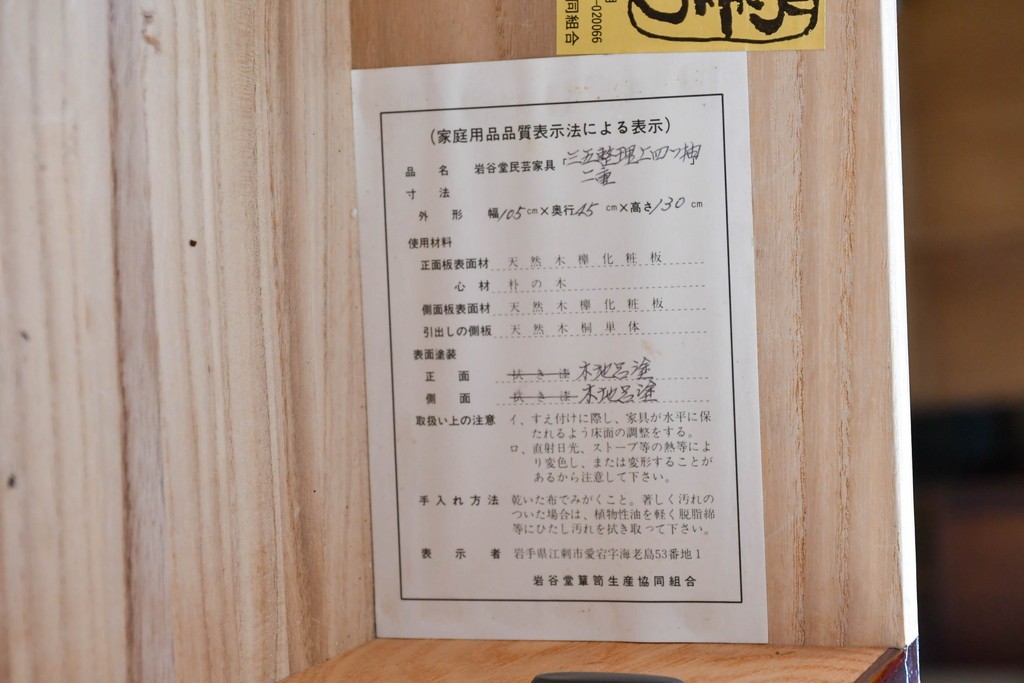 -020066
同組合
(家庭用品品質表示法による表示)
品名 岩谷堂民芸家具 三五整理上四ツ抽
二重
寸法
外形 幅105cm×奥行45cm×高さ130cm
使用材料
正面板表面材 天然木欅化粧板
心材 朴の木
側面板表面材 天然木欅化粧板
引出しの側板 天然木桐単体
表面塗装
正面 拭き漆 木地呂塗
側面 拭き漆 木地呂塗
取扱い上の注意 イ、すえ付けに際し、家具が水平に保
たれるよう床面の調整をする。
ロ、直射日光、ストーブ等の熱等によ
り変色し、または変形することが
あるから注意して下さい。
手入れ方法 乾いた布でみがくこと。著しく汚れの
ついた場合は、植物性油を軽く脱脂綿
等にひたし汚れを拭き取って下さい。
表示者 岩手県江刺市愛宕字海老島53番地1
岩谷堂簞笥生産協同組合